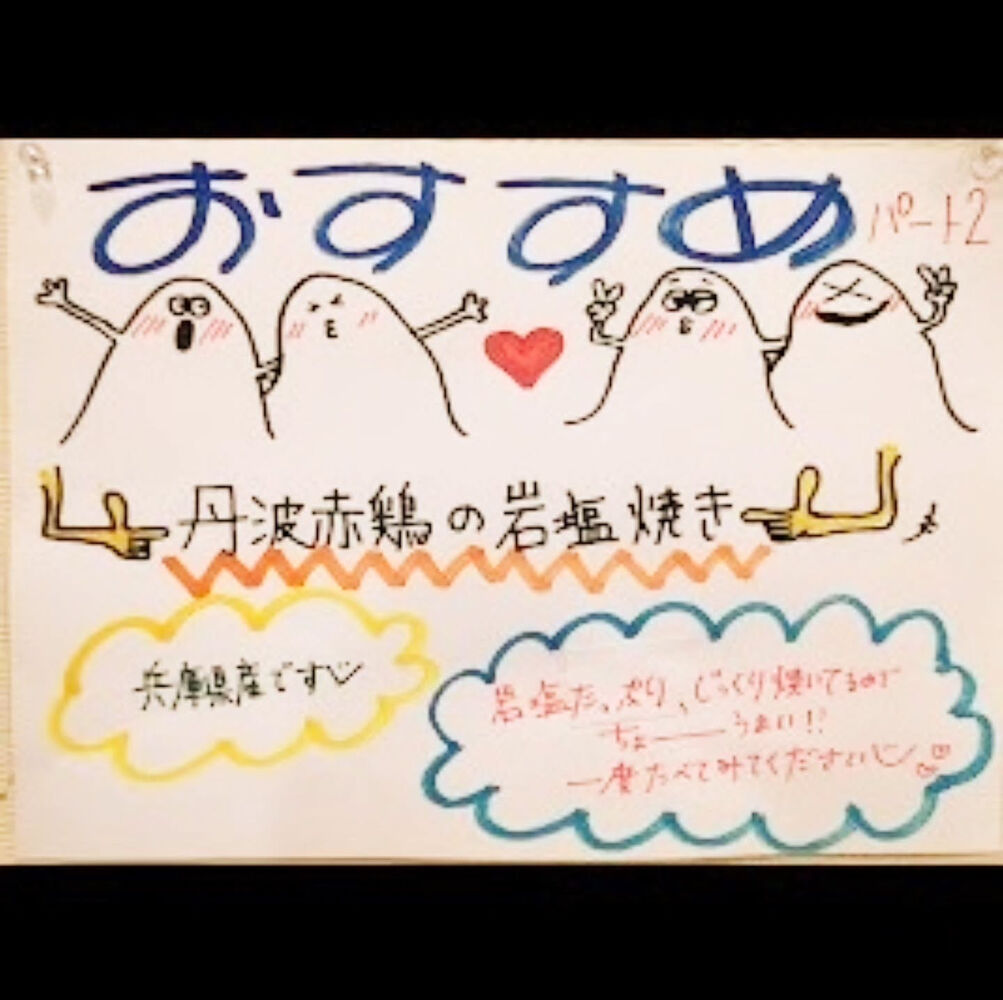 おすすめ
パート2
丹波赤鶏の岩塩焼き
兵庫県産です
岩塩たっぷり、じっくり焼いてるので
ちょーーうまい!?
一度たべてみてください